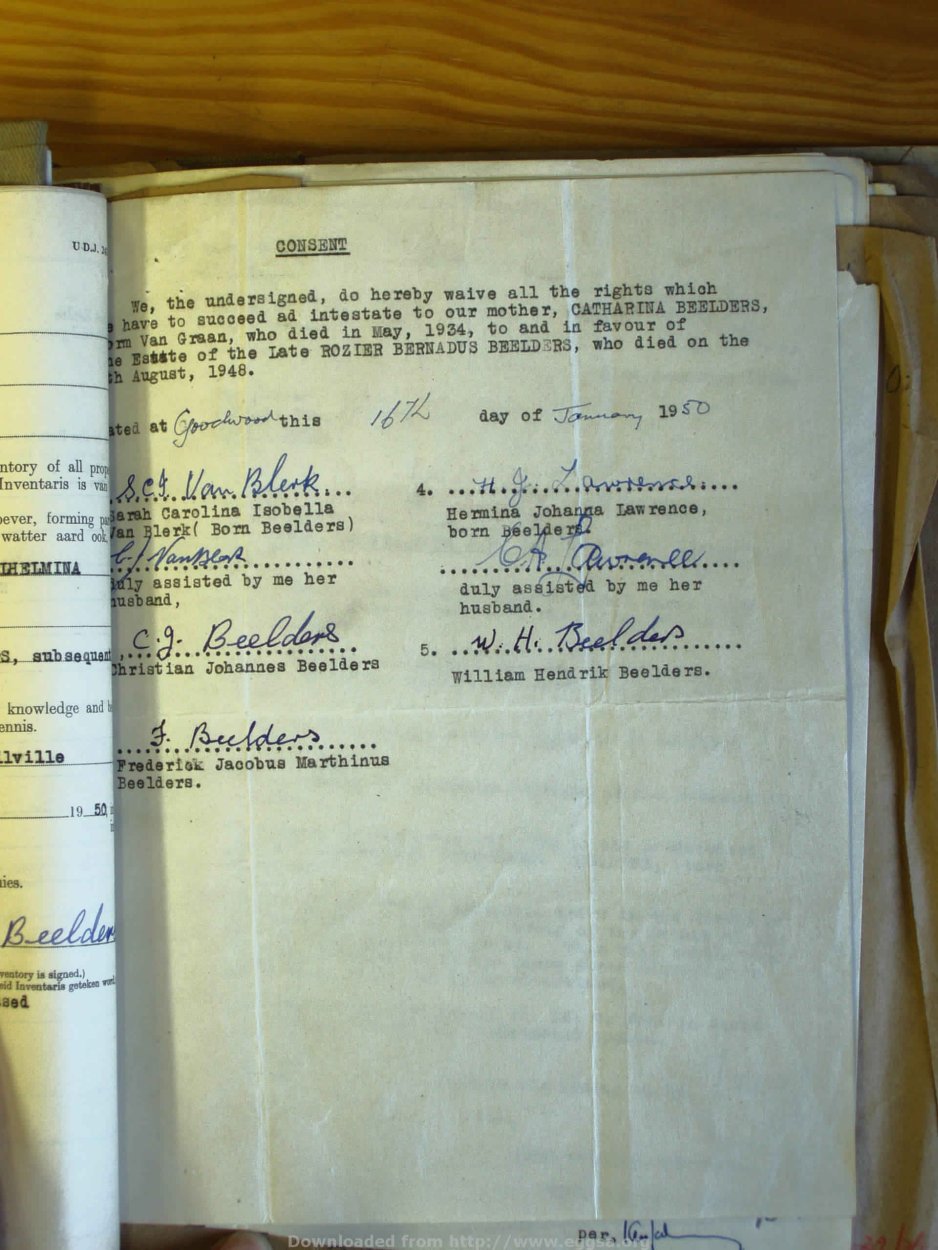 U.D.J.
CONSENT
We, the undersigned, do hereby waive all the rights which
have to succeed ad intestate to our mother, CATHARINA BEELDERS,
rm Van Graan, who died in May, 1934, to and in favour of
e Estate of the Late ROZIER BERNADUS BEELDERS, who died on the
h August, 1948.
ated at Goodwood this 16th day of January 1950
S.C.I. Van Blerk
Sarah Carolina Isobella
Van Blerk( Born Beelders)
VanBlerk
duly assisted by me her
husband,
C. J. Beelders
Christian Johannes Beelders
F. Beelders
Frederick Jacobus Marthinus
Beelders.
4. H. J. Lawrence
Hermina Johanna Lawrence,
born Beelders
Lawrence
duly assisted by me her
husband.
5. W. H. Beelders
William Hendrik Beelders.
ntory of all prop
Inventaris is van
oever, forming pa
watter aard ook
LHELMINA
S, subsequent
knowledge and b
ennis.
llville
19 50
ies.
Beelders
ventory is signed.)
eid Inventaris geteken word
sed
per.
Downloaded from http://www.eggsa.org